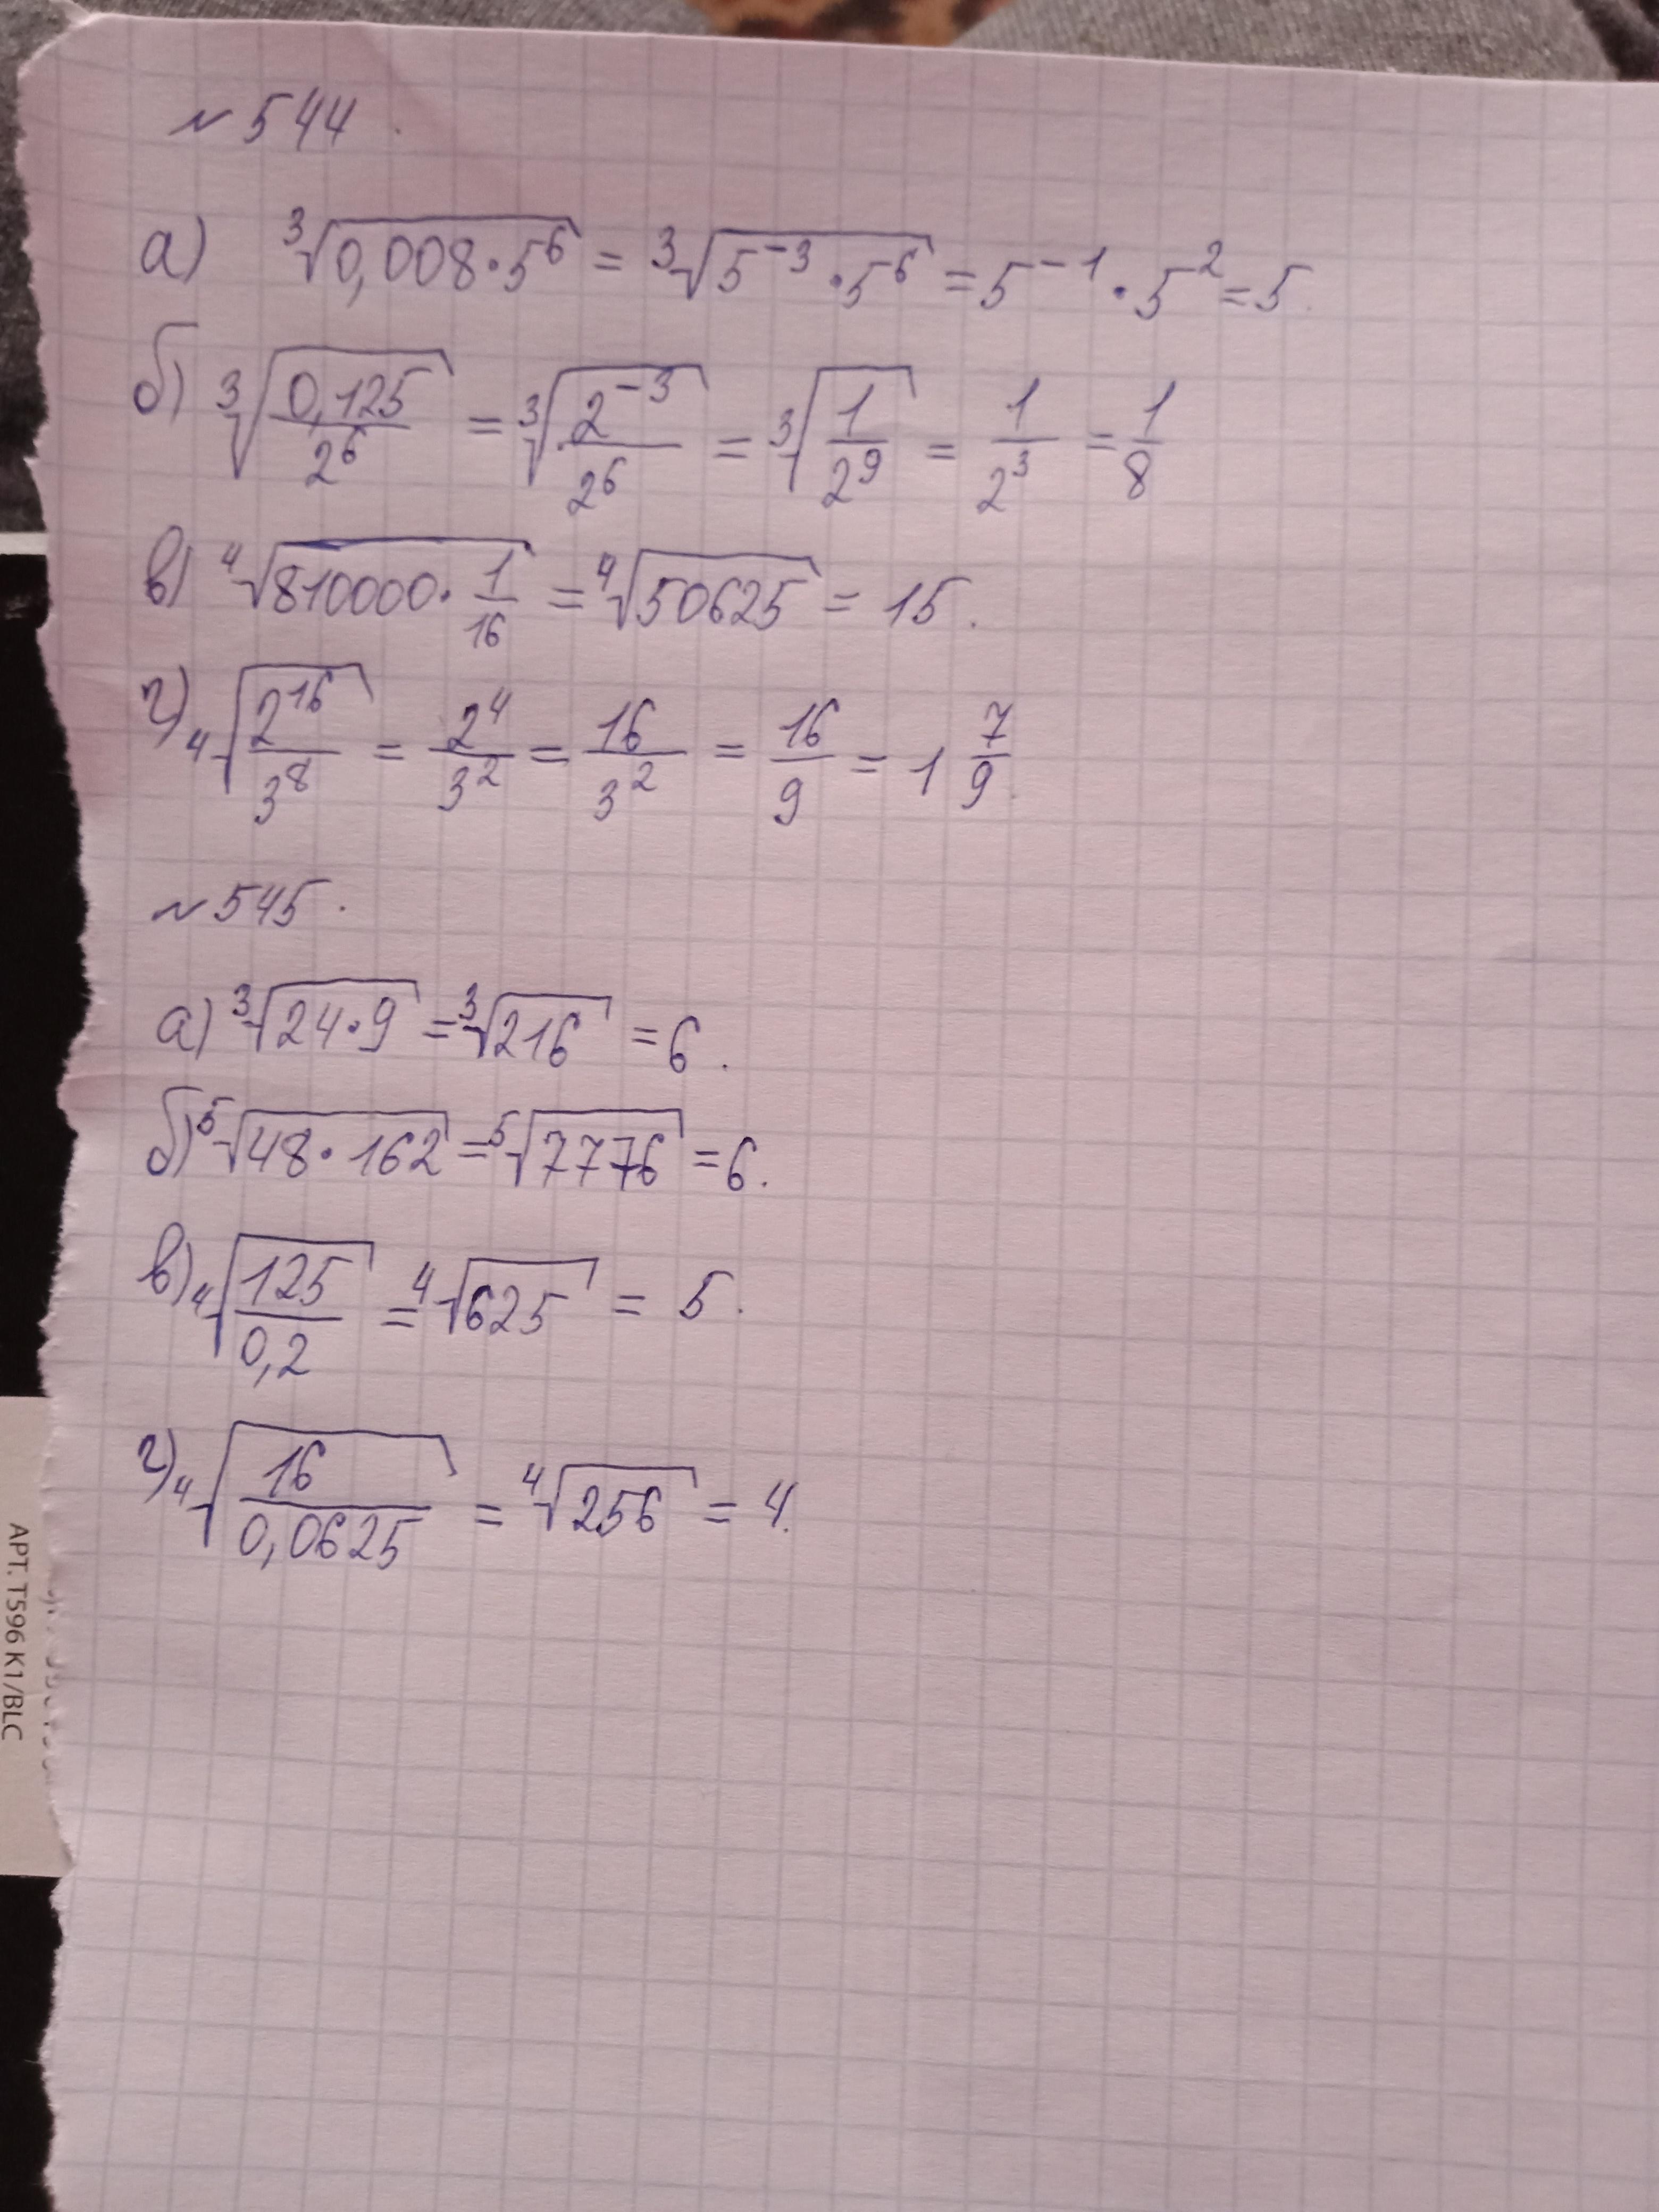 № 544.
а) ∛(0,008·5⁶) = ∛(5⁻³·5⁶) = 5⁻¹·5² = 5.
б) ∛(0,125/2⁶) = ∛(2⁻³/2⁶) = ∛(1/2⁹) = 1/2³ = 1/8
в) ∜(810000·1/16) = ∜50625 = 15.
г) ∜(2¹⁶/3⁸) = 2⁴/3² = 16/3² = 16/9 = 1 7/9.
№ 545.
а) ∛(24·9) = ∛216 = 6.
б) ⁵√(48·162) = ⁵√7776 = 6.
в) ∜(125/0,2) = ∜625 = 5.
г) ∜(16/0,0625) = ∜256 = 4.
АРТ. T596 K1/BLC